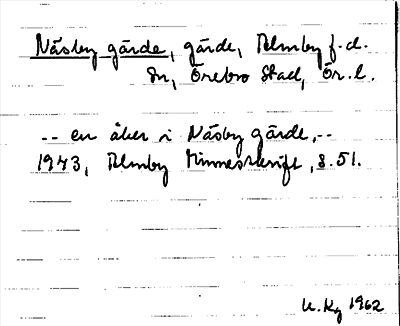 Näsby gärde, gärde, Almby f.d.
sn, Örebro stad, Ör. l.
-- en åker i Näsby gärde, --
1943, Almby Minnesskrift, s. 51.
U. Kg 1962